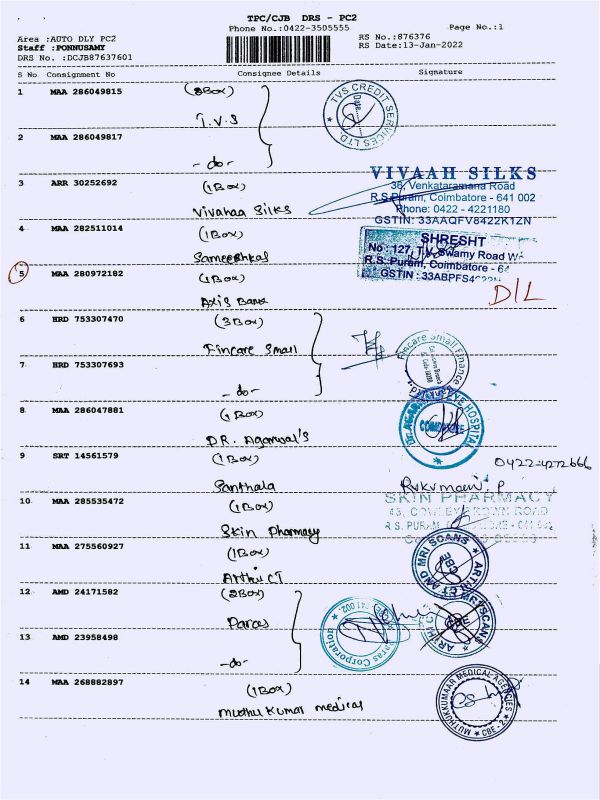 TPC/CJB DRS - PC2
Phone No.:0422-3505555
Page No.:1
Area :AUTO DLY PC2
Staff :PONNUSAMY
DRS No. :DCJB87637601
RS No.:876376
RS Date:13-Jan-2022
S No Consignment No Consignee Details Signature
1 MAA 286049815 (8Box)
T.V.S
TVS CREDIT SERVICES LTD.
2 MAA 286049817
-do-
3 ARR 30252692 (1Box)
Vivahaa Silks
VIVAAH SILKS
36, Venkataramana Road
R.S.Puram, Coimbatore - 641 002
Phone: 0422 - 4221180
GSTIN: 33AAQFV8422K1ZN
4 MAA 282511014 (1Box)
SHRESHT
No : 127, T.V. Swamy Road
R.S. Puram, Coimbatore - 64
GSTIN : 33ABPFS4
5 MAA 280972182 (1Box)
Axis Bank
D/L
6 HRD 753307470 (3Box)
Fincare Small
Fincare Small Finance
7 HRD 753307693
-do-
8 MAA 286047881 (1Box)
DR. Agarwal's
EYE HOSPITAL
9 SRT 14561579 (1Box)
0422-4272666
Santhala
Rukumani. P
10 MAA 285535472 (1Box)
SKIN PHARMACY
43, COWLEY BROWN ROAD
R.S. PURAM, - 641 002
Skin Pharmacy
11 MAA 275560927 (1Box)
Arthi CT
ARTHI CT AND MRI SCANS
CBE
12 AMD 24171582 (2Box)
Paras
Paras Corporation
CBE 641 002.
ARTHI CT MRI SCANS
CBE
13 AMD 23958498
-do-
14 MAA 268882897 (1Box)
Muthu Kumar medical
MUTHUKKUMAAR MEDICAL AGENCIES
CBE - 2